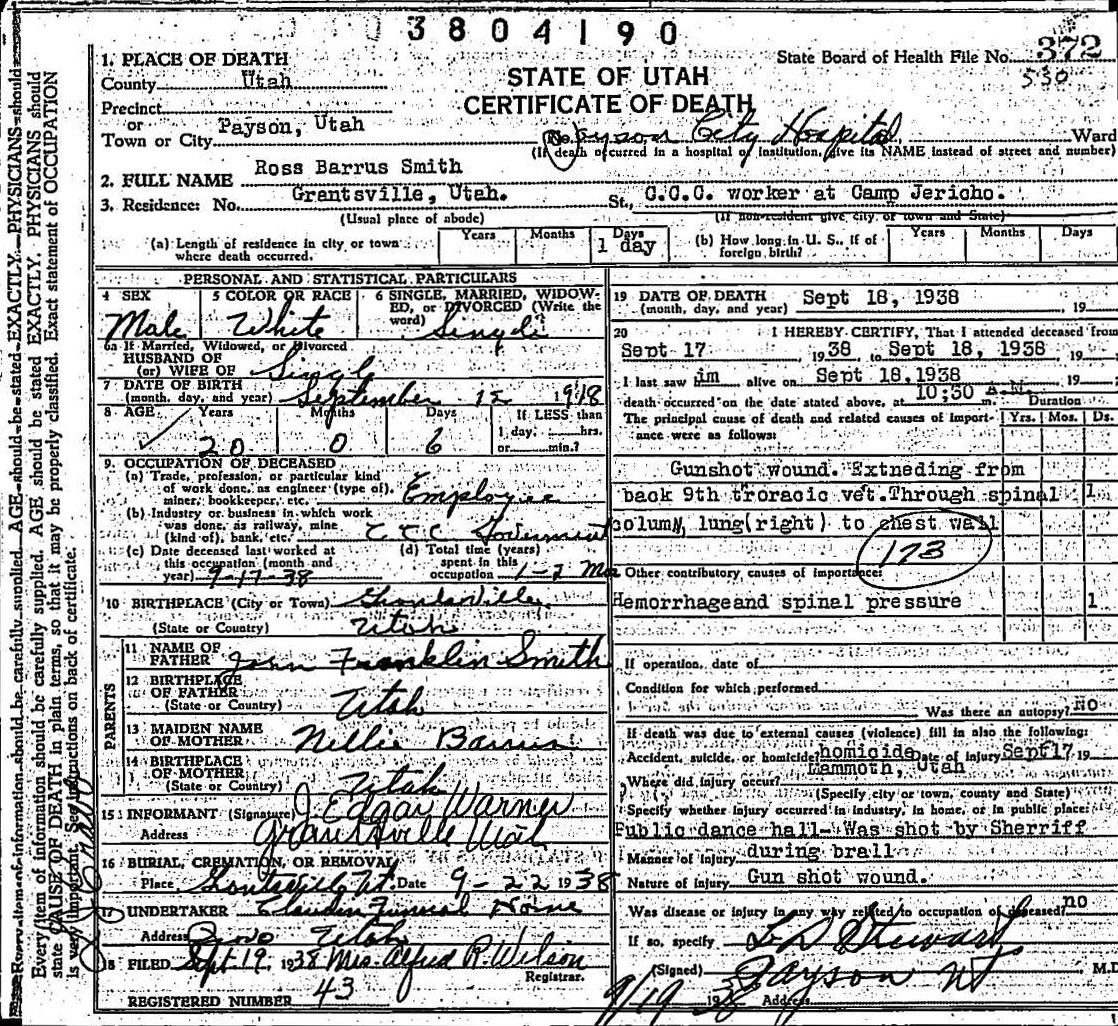 3804190
State Board of Health File No. 372
530
STATE OF UTAH
CERTIFICATE OF DEATH
1. PLACE OF DEATH
County Utah
Precinct
or
Town or City Payson, Utah
No. Payson City Hospital Ward
(If death occurred in a hospital or institution, give its NAME instead of street and number)
2. FULL NAME Ross Barrus Smith
3. Residence: No. Grantsville, Utah. St., C.C.C. worker at Camp Jericho.
(Usual place of abode)
(If non-resident give city or town and State)
(a) Length of residence in city or town where death occurred. Years Months Days 1 day
(b) How long in U. S., if of foreign birth? Years Months Days
PERSONAL AND STATISTICAL PARTICULARS
4 SEX
Male
5 COLOR OR RACE
White
6 SINGLE, MARRIED, WIDOW-
ED, or DIVORCED (Write the
word) Single
6a If Married, Widowed, or Divorced
HUSBAND OF
(or) WIFE OF Single
7 DATE OF BIRTH
(month, day, and year) September 12 1918
8 AGE Years Months Days If LESS than
1 day, hrs.
or min.?
20 0 6
9. OCCUPATION OF DECEASED
(a) Trade, profession, or particular kind
of work done, as engineer (type of),
miner, bookkeeper, etc. Employee
(b) Industry or business in which work
was done, as railway, mine
(kind of), bank, etc. CCC Goverment
(c) Date deceased last worked at
this occupation (month and
year) 9-17-38
(d) Total time (years)
spent in this
occupation 1-2 Mos
10 BIRTHPLACE (City or Town) Grantsville
(State or Country) Utah
PARENTS
11 NAME OF
FATHER John Franklin Smith
12 BIRTHPLACE
OF FATHER
(State or Country) Utah
13 MAIDEN NAME
OF MOTHER Nellie Barrus
14 BIRTHPLACE
OF MOTHER
(State or Country) Utah
15 INFORMANT (Signature) J. Edgar Warner
Address Grantsville Utah
16 BURIAL, CREMATION, OR REMOVAL
Place Date 9-22 1938
17 UNDERTAKER Funeral Home
Address Provo Utah
18 FILED Sept. 19, 1938 Mrs. Alfred R. Wilson
Registrar.
REGISTERED NUMBER 43
19 DATE OF DEATH
(month, day, and year) Sept 18, 1938 19
20 I HEREBY CERTIFY, That I attended deceased from
Sept 17 1938 to Sept 18, 1938 19
I last saw im alive on Sept 18,1938 19
death occurred on the date stated above, at 10;30 A.M. m.
Duration
The principal cause of death and related causes of import-
ance were as follows: Yrs. Mos. Ds.
Gunshot wound. Extneding from
back 9th troracic vet.Through spinal 1
column, lung(right) to chest wall
173
Other contributory causes of importance:
Hemorrhageand spinal pressure 1
If operation, date of
Condition for which performed
Was there an autopsy? no
If death was due to external causes (violence) fill in also the following:
Accident, suicide, or homicide? homicide Date of injury Sept17 19
Where did injury occur? Mammoth, Utah
(Specify city or town, county and State)
Specify whether injury occurred in industry, in home, or in public place:
Public dance hall- Was shot by Sherriff
Manner of injury during brall
Nature of injury Gun shot wound.
Was disease or injury in any way related to occupation of deceased? no
If so, specify
L D Stewart
(Signed) M.D
9/19 1938 Address Payson Ut
Every item of information should be carefully supplied. AGE should be stated EXACTLY. PHYSICIANS should
Every item of information should be carefully supplied. AGE should be stated EXACTLY. PHYSICIANS should
state CAUSE OF DEATH in plain terms, so that it may be properly classified. Exact statement of OCCUPATION
is very important. See instructions on back of certificate.